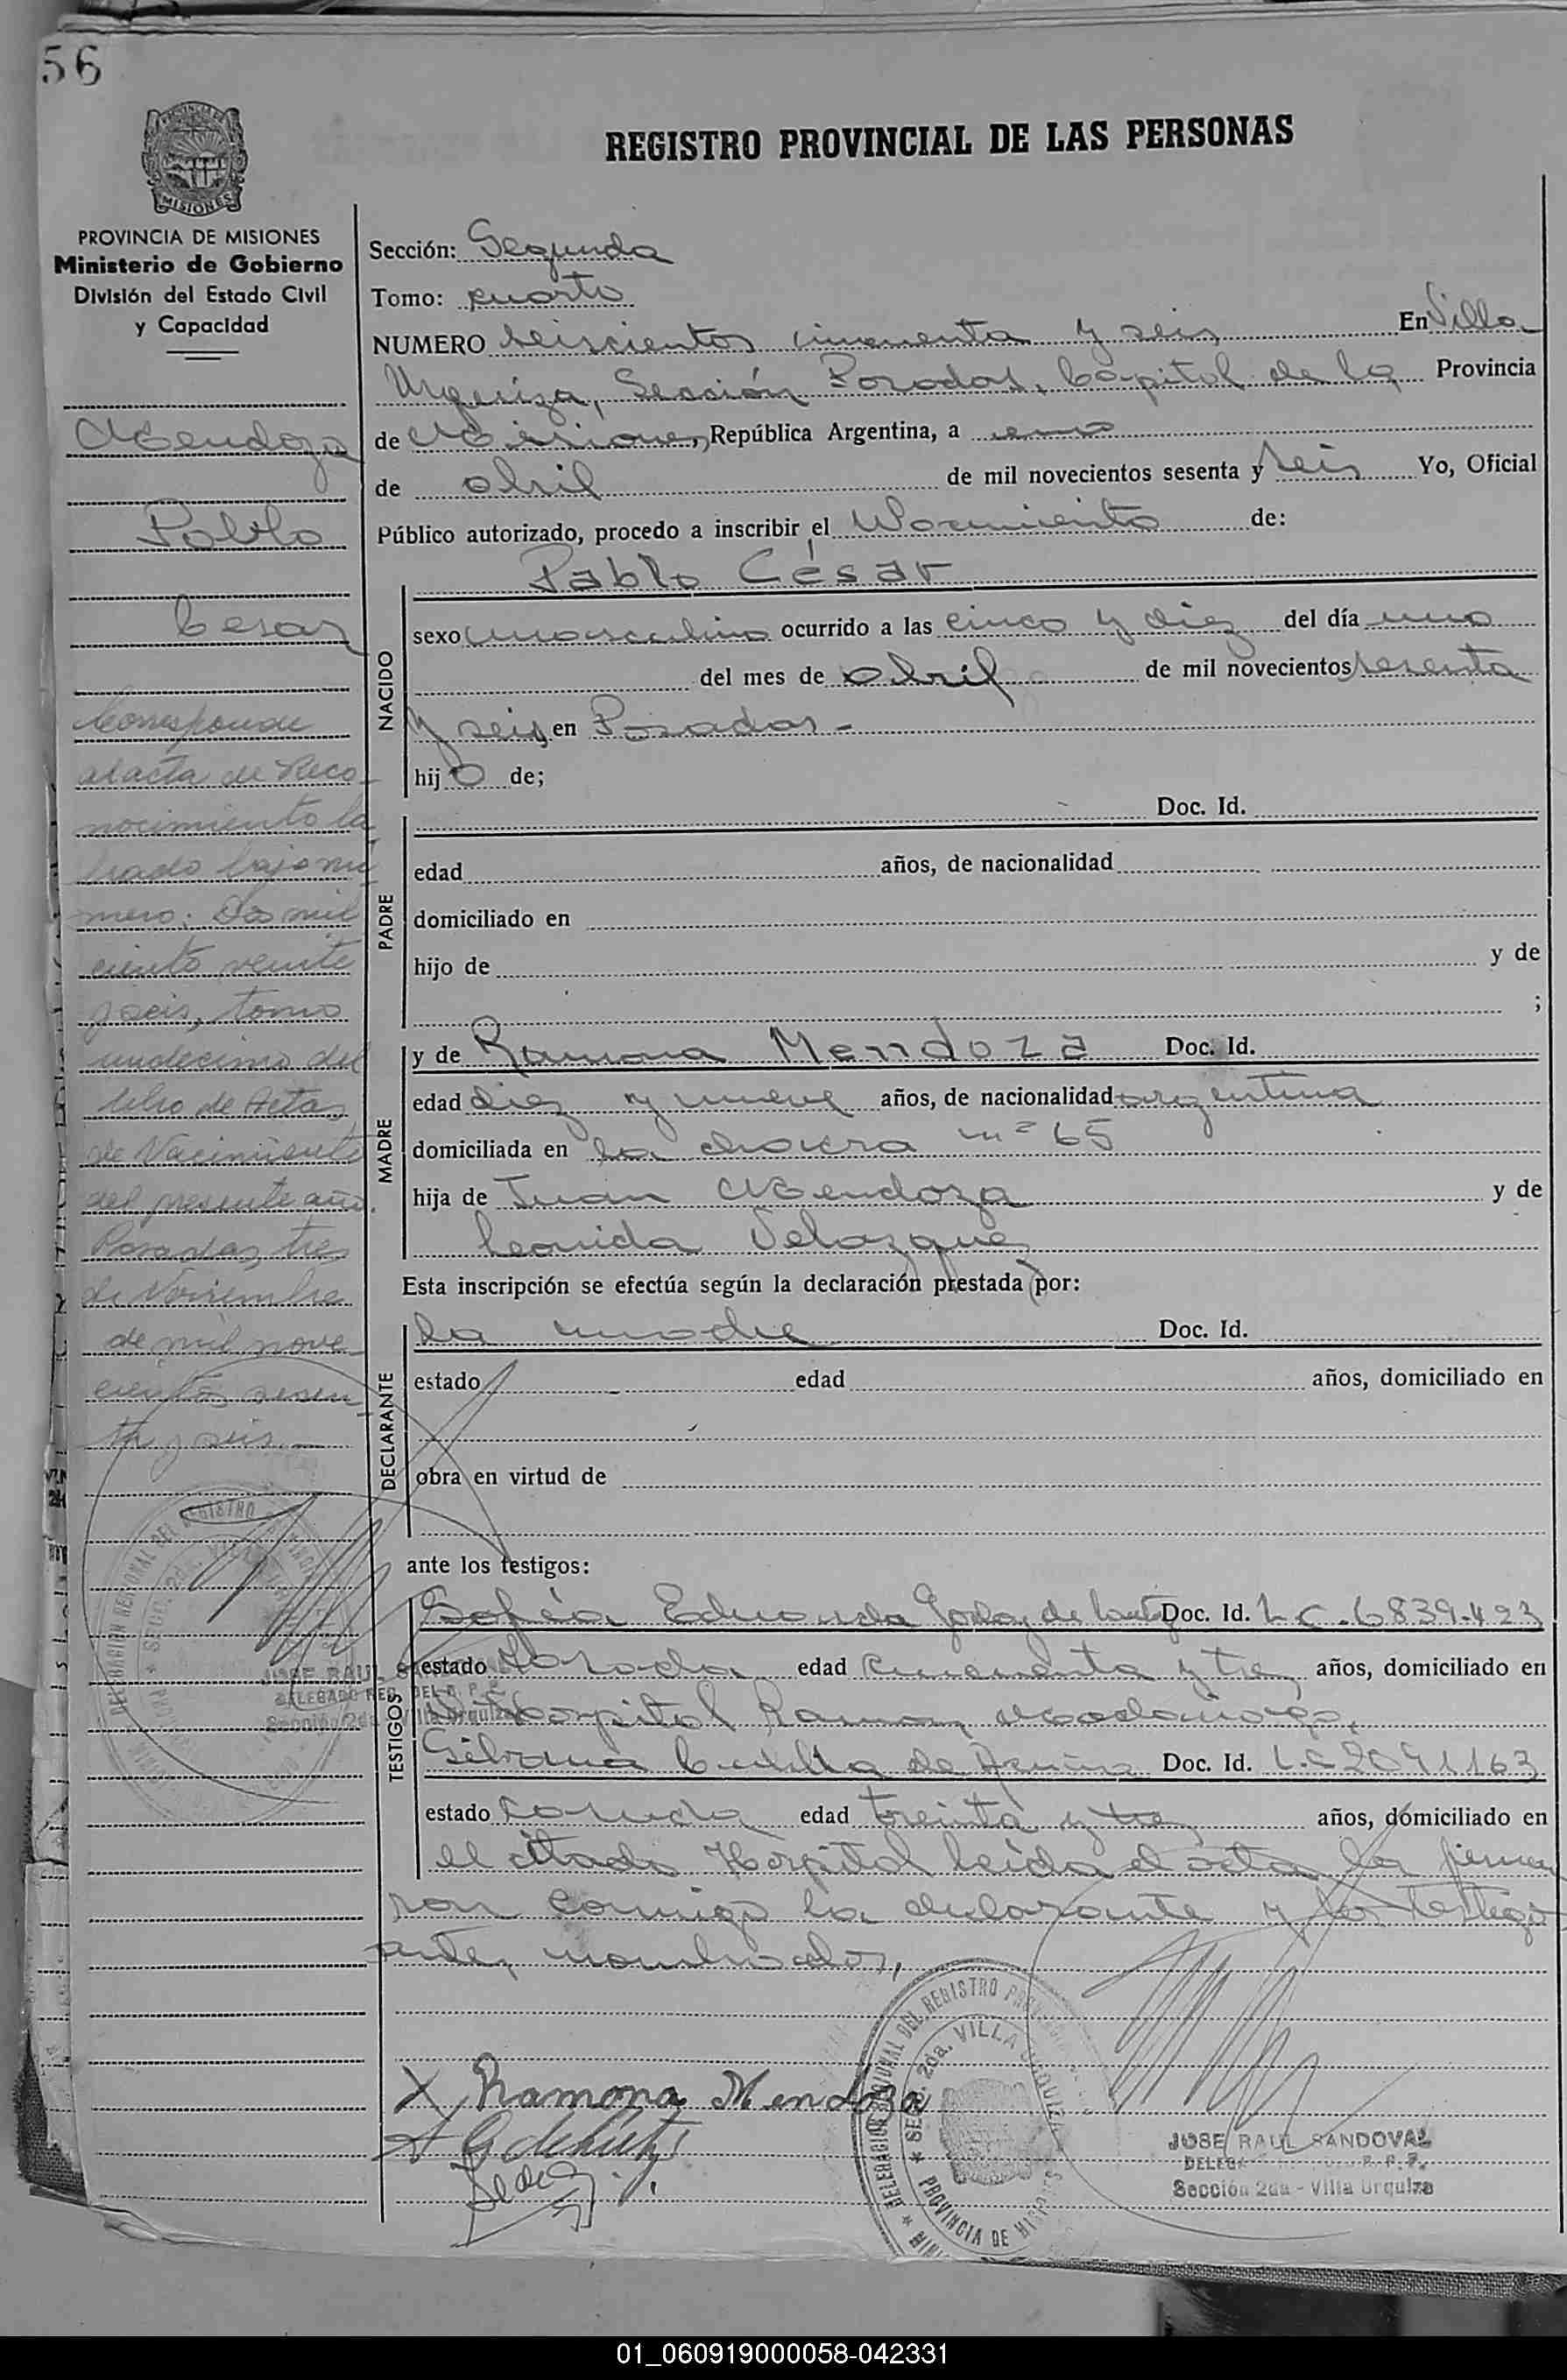 56
REGISTRO PROVINCIAL DE LAS PERSONAS
MISIONES
PROVINCIA DE MISIONES
Ministerio de Gobierno
División del Estado Civil
y Capacidad
Mendoza
Pablo
Cesar
Corresponde
al acta de Reco-
nocimiento la-
brado bajo nú-
mero: Dos mil
ciento veinte
y seis, tomo
undecimo del
libro de Actas
de Nacimiento
del presente año.
Posadas, tres
de Noviembre
de mil nove-
cientos sesen-
ta y seis.—
Sección: Segunda
Tomo: cuarto
NUMERO seiscientos cincuenta y seis En Villa
Urquiza, Sección Posadas, Capital de la Provincia
de Misiones, República Argentina, a uno
de abril de mil novecientos sesenta y seis Yo, Oficial
Público autorizado, procedo a inscribir el Nacimiento de:
Pablo César
NACIDO
sexo masculino ocurrido a las cinco y diez del día uno
del mes de abril de mil novecientos sesenta
y seis, en Posadas -
hijo de;
PADRE
Doc. Id.
edad años, de nacionalidad
domiciliado en
hijo de y de
;
MADRE
y de Ramona Mendoza Doc. Id.
edad diez y nueve años, de nacionalidad argentina
domiciliada en la chacra nº 65
hija de Juan Mendoza y de
Leonida Velazquez
Esta inscripción se efectúa según la declaración prestada por:
DECLARANTE
la madre Doc. Id.
estado edad años, domiciliado en
obra en virtud de
ante los testigos:
TESTIGOS
Sofía Eduarda Godoy de Doc. Id. L.C. 6839.423
estado casada edad cincuenta y tres años, domiciliado en
Hospital Ramon Madariaga,
Silvana de Doc. Id. L.C. 2091163
estado casada edad treinta y tres años, domiciliado en
el citado Hospital leída el acta la firma
ron conmigo la declarante y los testigos
antes nombrados,
DELEGACION REGIONAL DEL REGISTRO
SECC. 2da. VILLA URQUIZA
PROVINCIA DE MISIONES
X Ramona Mendoza
JOSE RAUL SANDOVAL
Sección 2da - Villa Urquiza
JOSE RAUL
DELEGADO REG. DEL R. P. P.
Sección 2da Villa Urquiza
01_060919000058-042331